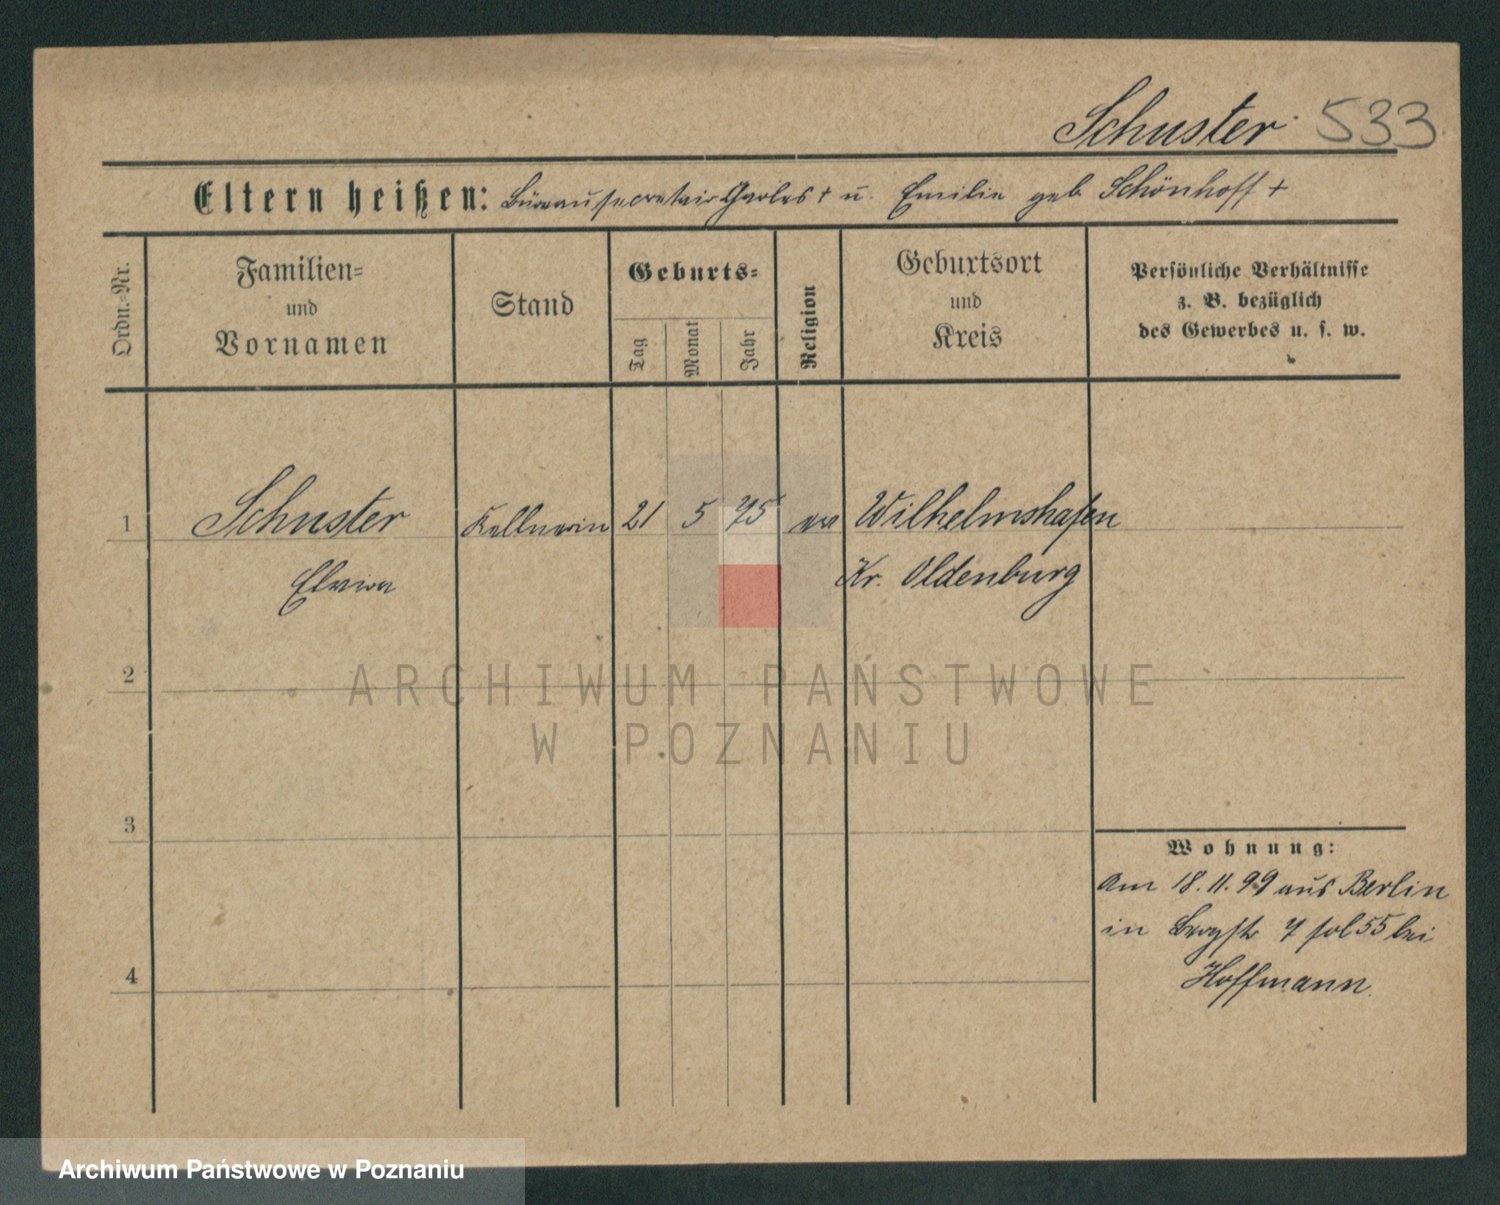 Schuster 533
Eltern heißen: Büreausecretair Garles † u. Emilie geb Schönhoff †
Ordn.-Nr.
Familien- und Vornamen
Stand
Geburts-
Tag
Monat
Jahr
Religion
Geburtsort und Kreis
Persönliche Verhältnisse
z. B. bezüglich
des Gewerbes u. s. w.
1 Schuster Kellnerin 21 5 75 ev Wilhelmshafen
Elvira Kr. Oldenburg
2
ARCHIWUM PAŃSTWOWE
W POZNANIU
3
Wohnung:
Am 18.11.99 aus Berlin
in 7 sol 55 bei
Hoffmann
4
Archiwum Państwowe w Poznaniu